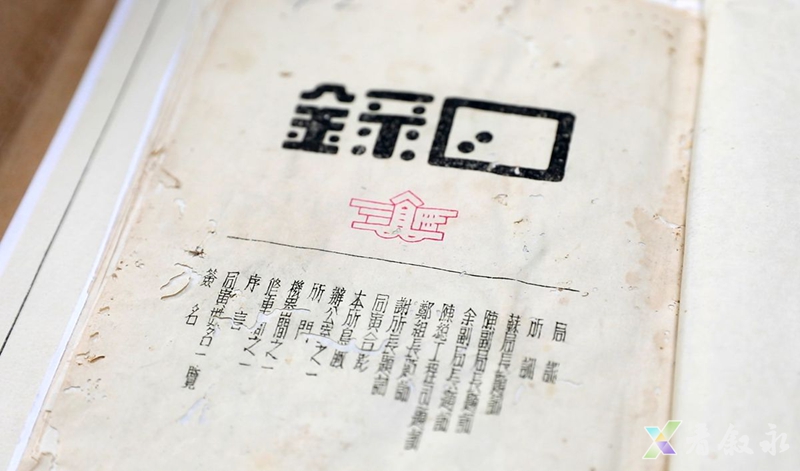 目錄
局
所訓
蘇局長題詞
陳副局長題詞
余副局長題詞
陳總工程司題詞
鄭組長題詞
謝所長題詞
同寅合影
本所鳥瞰
辦公室之一
所門
機器間之一
修車間之一
序言
同寅姓名一覽
簽名
叙永